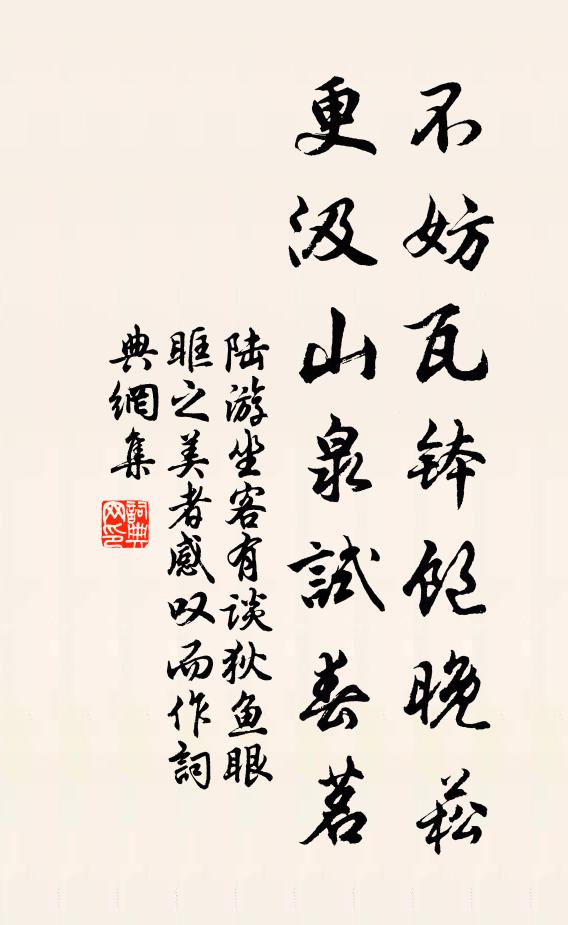 不妨瓦钵饱晚菘
更汲山泉試春茗
陆游坐客有谈狄鱼眼
眶之美者感叹而作詞
典網集
詞典网印